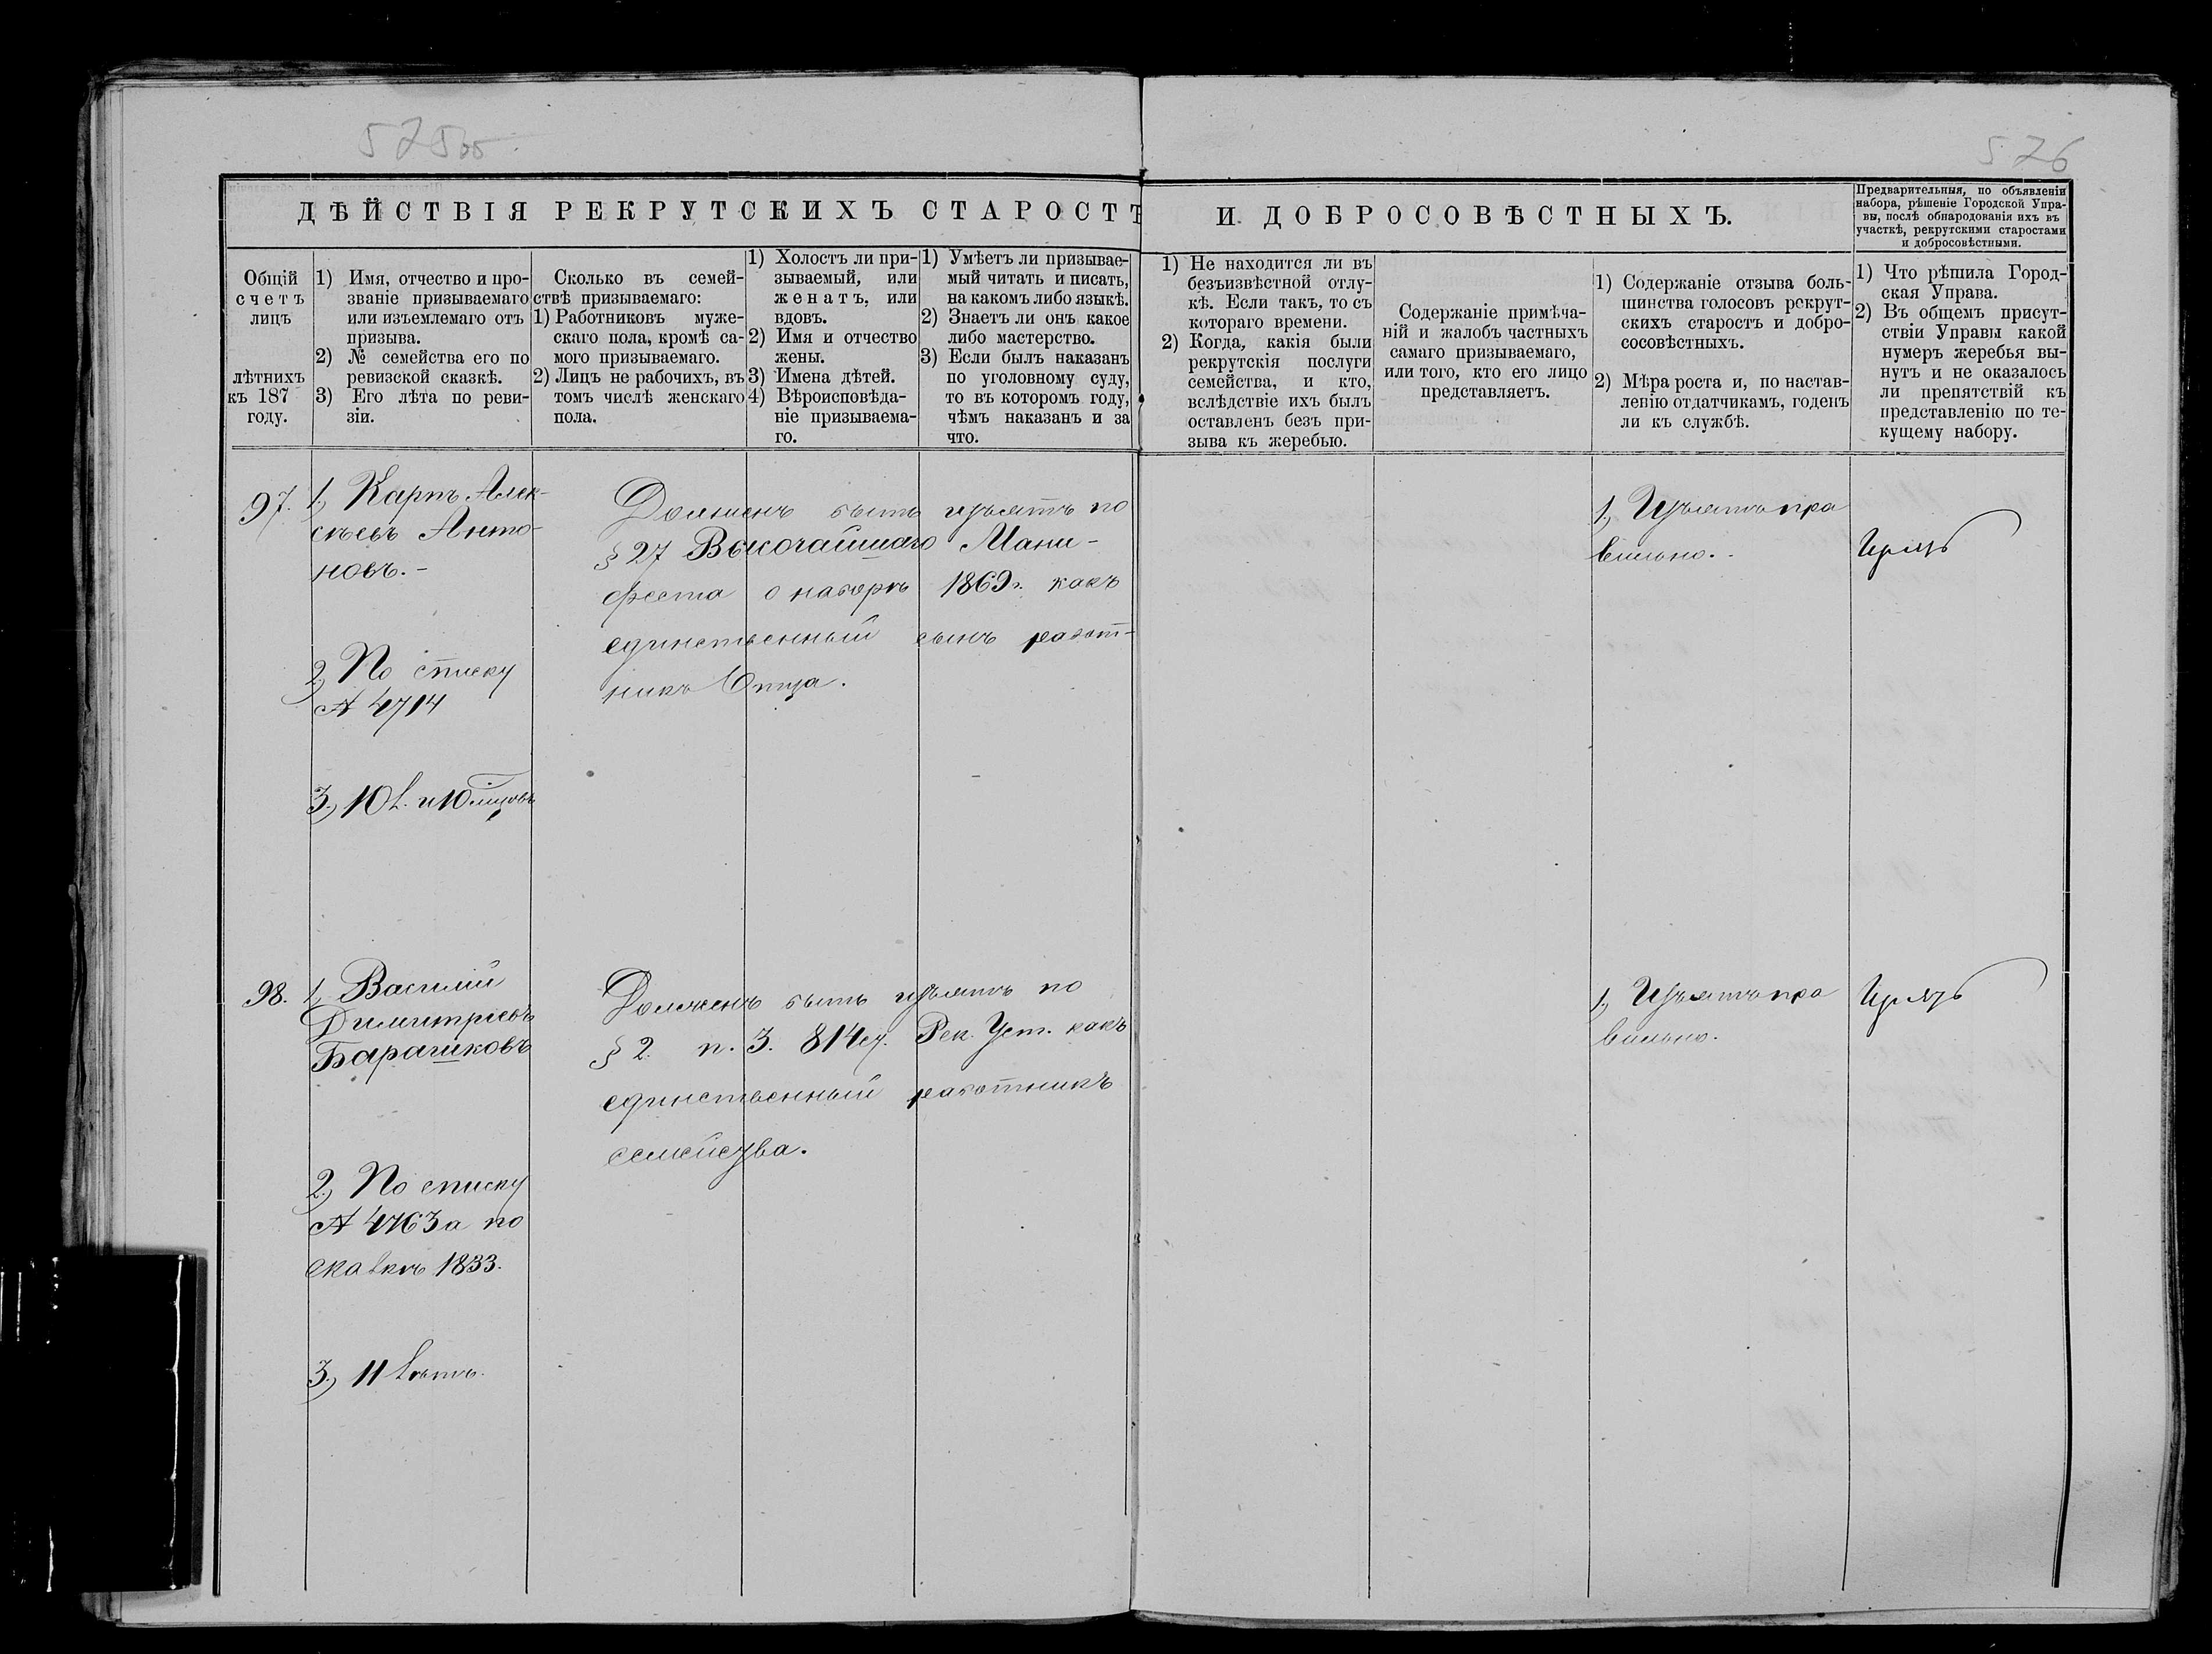 575об
576
ДѢЙСТВІЯ РЕКРУТСКИХЪ СТАРОСТЪ И ДОБРОСОВѢСТНЫХЪ.
Предварительныя, по объявленіи
набора, рѣшеніе Городской Упра-
вы, послѣ обнародованія ихъ въ
участкѣ, рекрутскими старостами
и добросовѣстными.
Общій
счетъ
лицъ
лѣтнихъ
къ 187
году.
1) Имя, отчество и про-
званіе призываемаго
или изъемлемаго отъ
призыва.
2) № семейства его по
ревизской сказкѣ.
3) Его лѣта по реви-
зіи.
Сколько въ семей-
ствѣ призываемаго:
1) Работниковъ муже-
скаго пола, кромѣ са-
мого призываемаго.
2) Лицъ не рабочихъ, въ
томъ числѣ женскаго
пола.
1) Холостъ ли при-
зываемый, или
женатъ, или
вдовъ.
2) Имя и отчество
жены.
3) Имена дѣтей.
4) Вѣроисповѣда-
ніе призываема-
го.
1) Умѣетъ ли призывае-
мый читать и писать,
на какомъ либо языкѣ.
2) Знаетъ ли онъ какое
либо мастерство.
3) Если былъ наказанъ
по уголовному суду,
то въ которомъ году,
чѣмъ наказанъ и за
что.
1) Не находится ли въ
безъизвѣстной отлу-
кѣ. Если такъ, то съ
котораго времени.
2) Когда, какія были
рекрутскія послуги
семейства, и кто,
вслѣдствіе ихъ былъ
оставленъ безъ при-
зыва къ жеребью.
Содержаніе примѣча-
ній и жалобъ частныхъ
самаго призываемаго,
или того, кто его лицо
представляетъ.
1) Содержаніе отзыва боль-
шинства голосовъ рекрут-
скихъ старостъ и добро-
сосовѣстныхъ.
2) Мѣра роста и, по настав-
ленію отдатчикамъ, годенъ
ли къ службѣ.
1) Что рѣшила Город-
ская Управа.
2) Въ общемъ присут-
ствіи Управы какой
нумеръ жеребья вы-
нутъ и не оказалось
ли препятствій къ
представленію по те-
кущему набору.
97.
1, Карпъ Алек-
сѣевъ Анто-
новъ.-
2, По списку
А 4714
3, 10 л. и 10
Долженъ быть изъятъ по
§ 27 Высочайшаго Мани-
феста о наборѣ 1869г. какъ
единственный сынъ работ-
никъ Отца.
1, Изъятъ пра
вильно.
98.
1, Василій
Димитріевъ
Барашковъ
2, По списку
А 4763а по
сказкѣ 1833.
3, 11 лѣтъ.
Долженъ быть изъятъ по
§ 2. п. 3. 814 Рек. Уст. какъ
единственный работникъ
семейства.
1, Изъятъ пра
вильно.